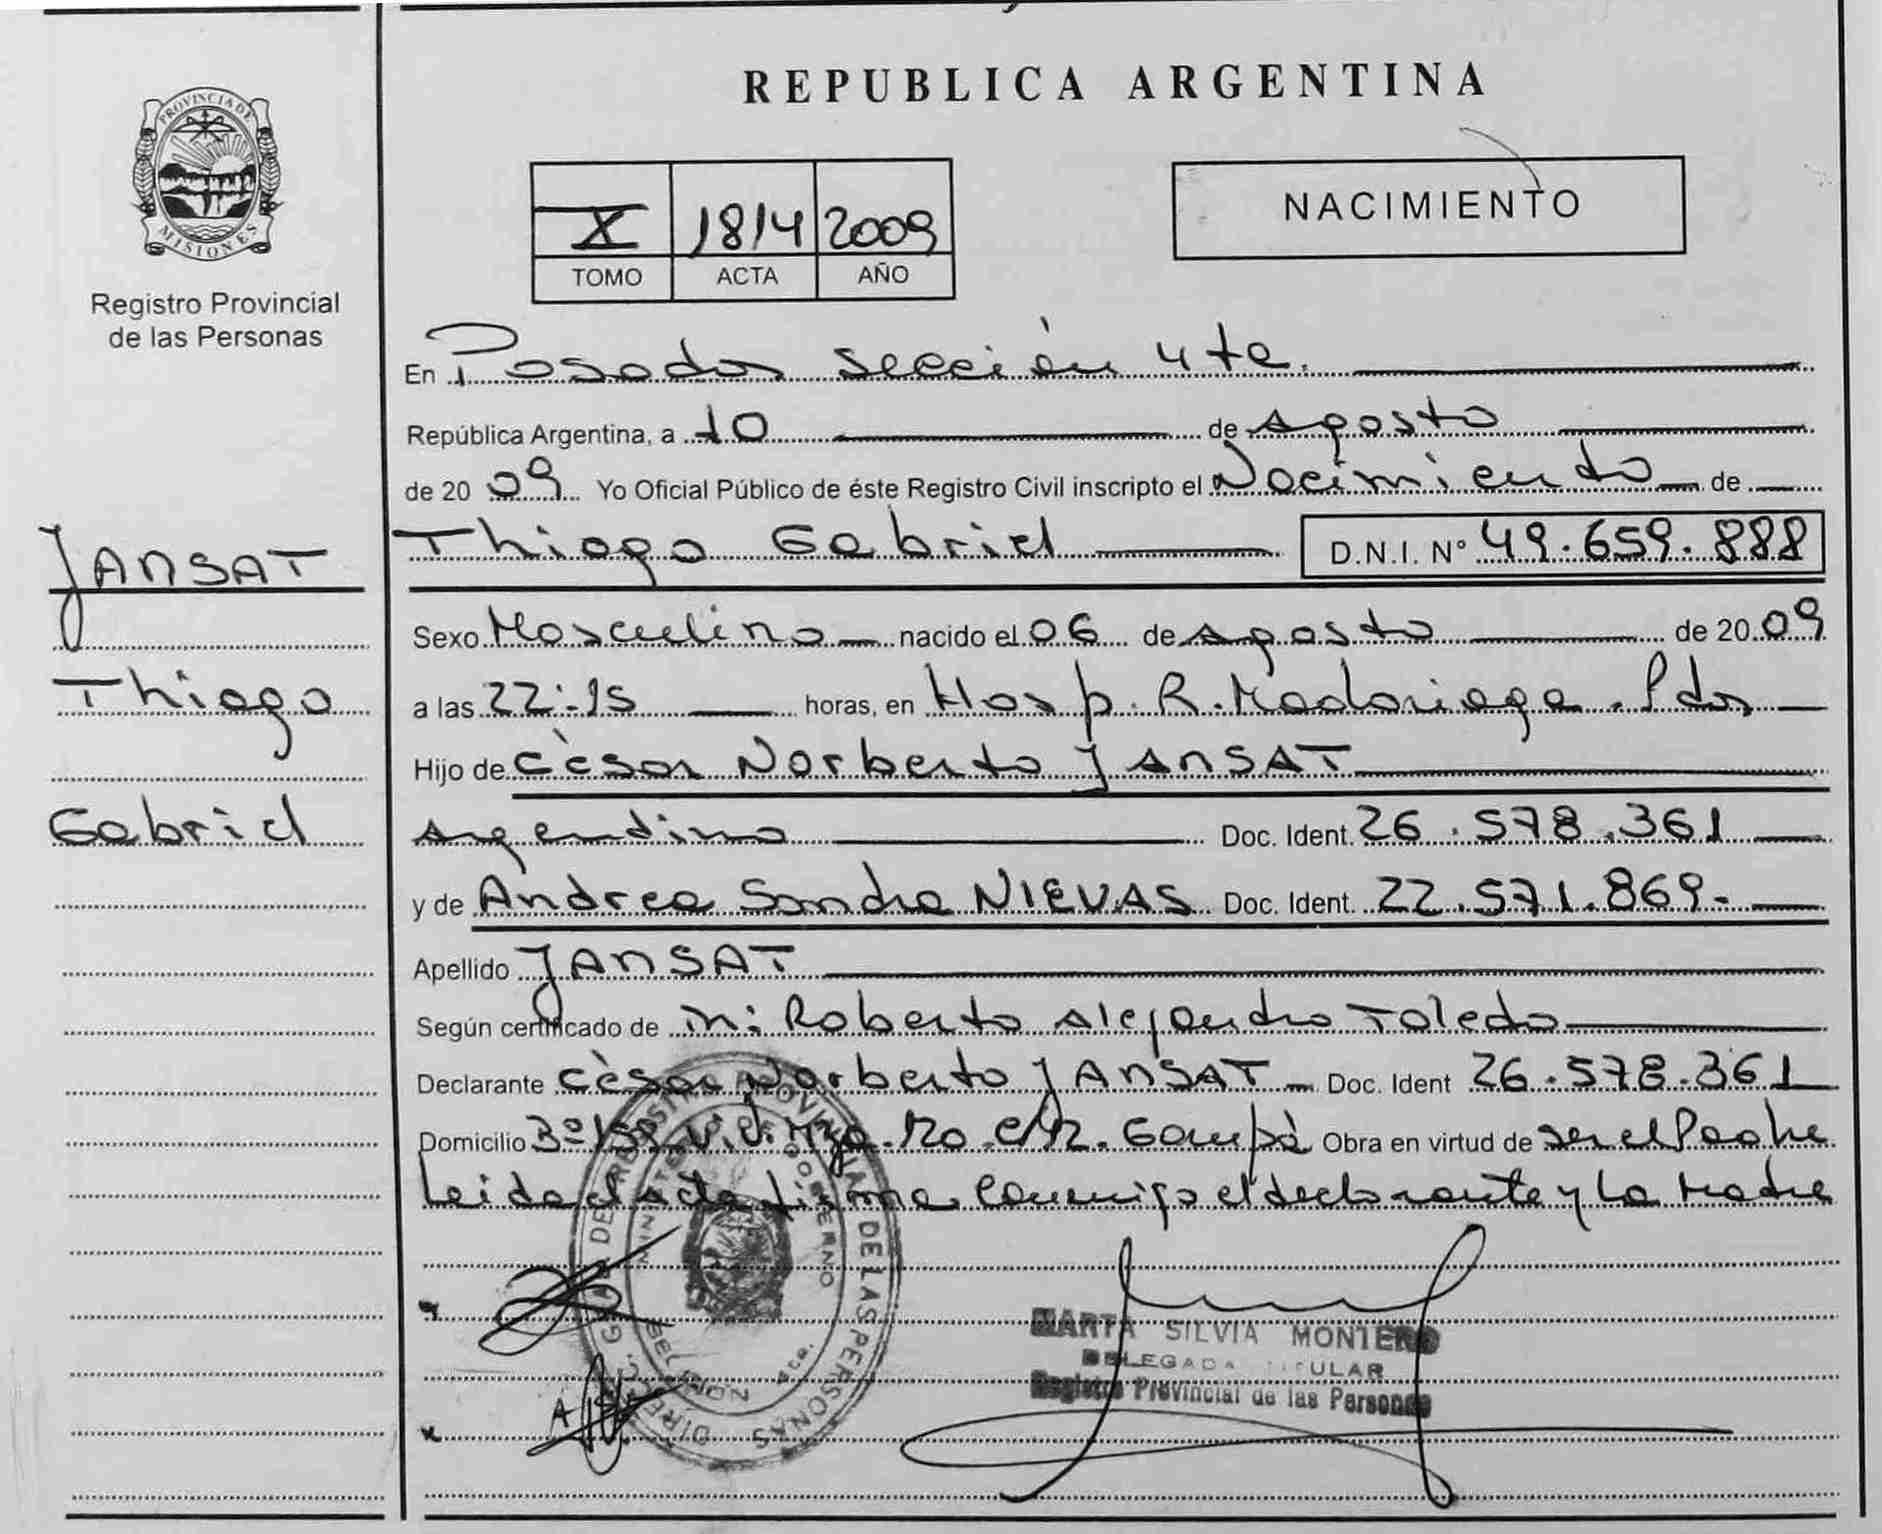 REPUBLICA ARGENTINA
PROVINCIA DE
MISIONES
Registro Provincial
de las Personas
X 1814 2009
TOMO ACTA AÑO
NACIMIENTO
En Posadas Sección 4ta.
República Argentina, a 10 de Agosto
de 2009 Yo Oficial Público de éste Registro Civil inscripto el Nacimiento de
Thiago Gabriel D.N.I. Nº 49.659.888
JANSAT
Thiago
Gabriel
Sexo Masculino nacido el 06 de Agosto de 2009
a las 22:15 horas, en Hosp. R. Madariaga. Pdas
Hijo de Cèsar Norberto JANSAT
Argentino Doc. Ident. 26.578.361
y de Andrea Sandra NIEVAS Doc. Ident. 22.571.869.
Apellido JANSAT
Según certificado de Roberto Alejandro Toledo
Declarante Cèsar Norberto JANSAT Doc. Ident 26.578.361
Domicilio Obra en virtud de ser el Padre
Leida el acta firma conmigo el declarante y la Madre
DIRECC. GRAL. DE REGISTRO PROVINCIAL DE LAS PERSONAS
MINISTERIO DE GOBIERNO
MARTA SILVIA MONTERO
DELEGADA TITULAR
Registro Provincial de las Personas